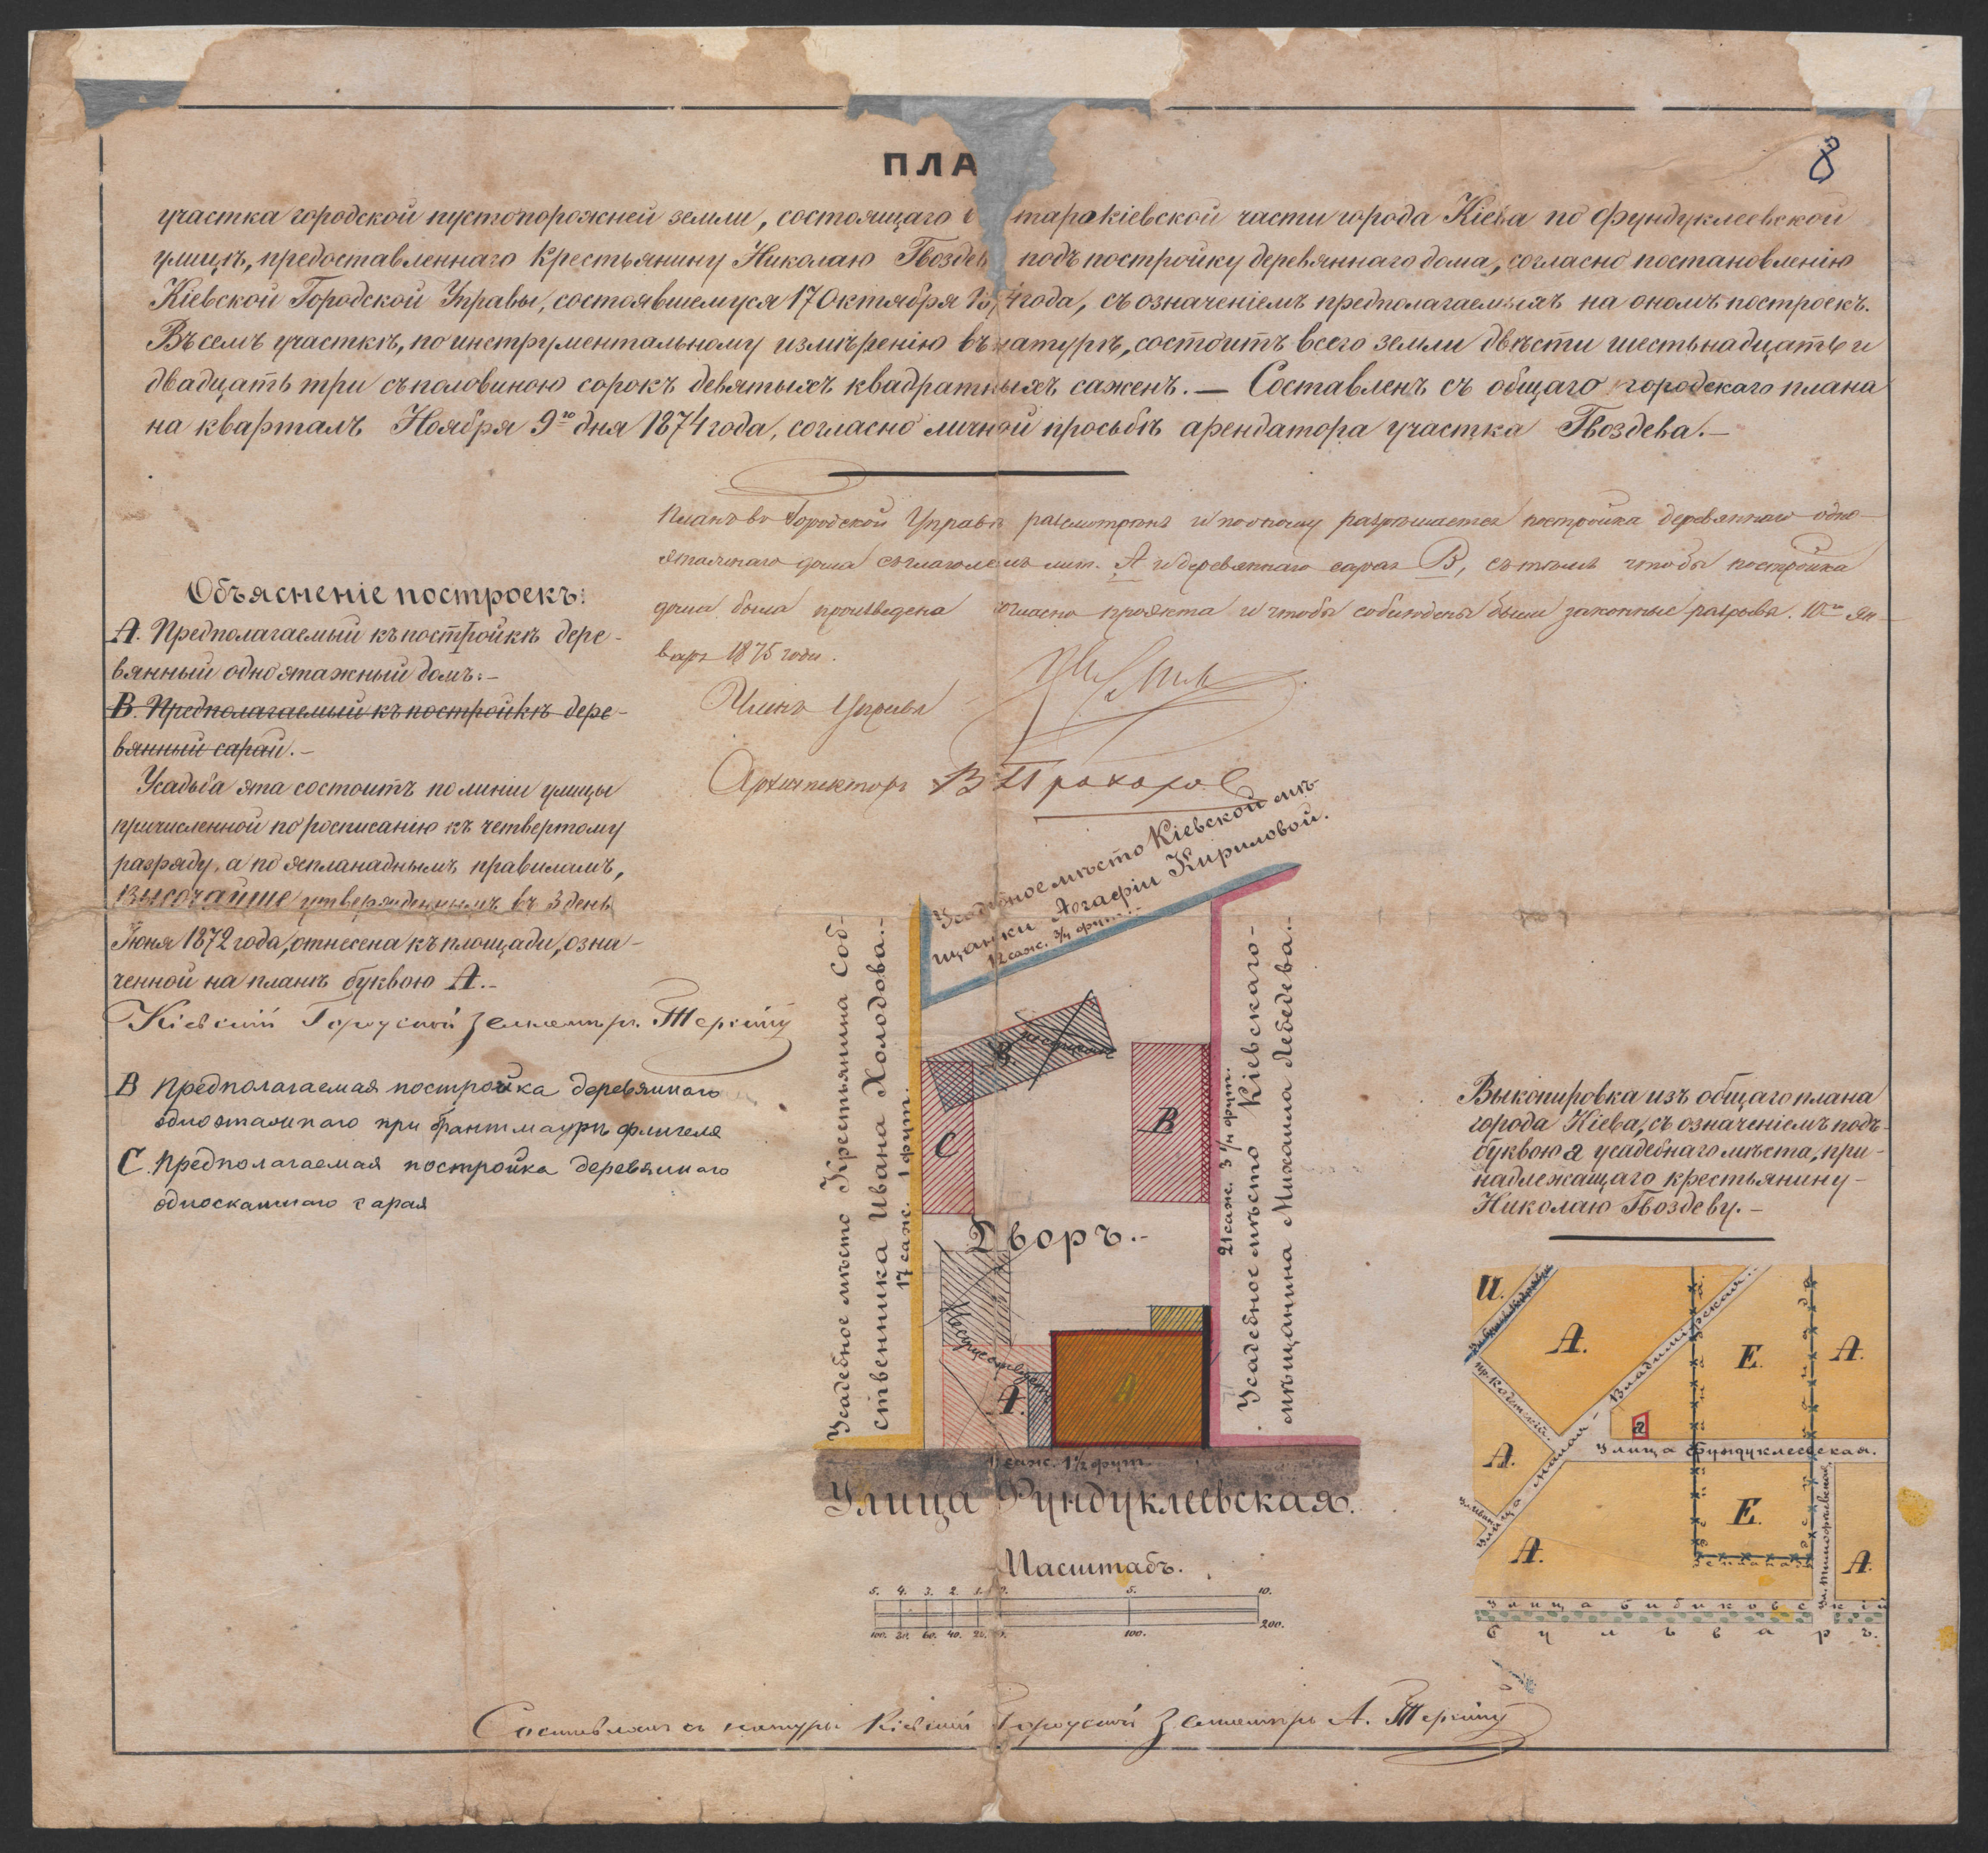 ПЛА
8
участка городской пустопорожней земли, состоящаго в тарокіевской части города Кіева по Фундуклеевской
улицѣ, предоставленнаго Крестьянину Николаю Гвоздев подъ постройку деревяннаго дома, согласно постановленію
Кіевской Городской Управы, состоявшемуся 17 Октября года, съ означеніемъ предполагаемыхъ на ономъ построекъ.
Въ семъ участкѣ, по инструментальному измѣренію въ натурѣ, состоитъ всего земли двѣсти шестьнадцать и
двадцать три съ половиною сорокъ девятыхъ квадратныхъ саженъ. — Составленъ съ общаго городскаго плана
на кварталъ Ноября 9го дня 1874 года, согласно личной просьбѣ арендатора участка Гвоздева. —
Планъ въ Городской Управѣ разсмотрѣнъ и по оному разрѣшается постройка деревяннаго одно-
этажнаго дома съ глаголемъ лит. А и деревяннаго сарая В, съ тѣмъ чтобы постройка
дома была произведена согласно проэкта и чтобы соблюдены были законные разрывы. 10го Ян-
варя 1875 года.
Членъ Управы
Архитекторъ В Прохоров
Объясненіе построекъ:
А. Предполагаемый къ постройкѣ дере-
вянный одноэтажный домъ: —
В. Предполагаемый къ постройкѣ дере-
вянный сарай. —
Усадьба эта состоитъ по линіи улицы
причисленной по росписанію къ четвертому
разряду, а по эспланаднымъ правиламъ,
Высочайше утвержденнымъ въ 3 день
Іюня 1872 года, отнесена къ площади, озна-
ченной на планѣ буквою А. —
Кіевскій Городской Землемѣръ
В Предполагаемая постройка деревяннаго
одноэтажнаго при брантмаурѣ флигеля
С. Предполагаемая постройка деревяннаго
односкатнаго сарая
Усадебное мѣсто Кіевской мѣ-
щанки Агафіи Кириловой.
12 саж. 3/4 фут. —
Усадебное мѣсто Крестьянина Соб-
ственника Ивана Холодова. —
17 саж. 1 фут.
21 саж. 3 1/4 фут.
Усадебное мѣсто Кіевскаго
мѣщанина Михаила Лебедева. —
В
С
В
Дворъ. —
А.
А
саж. 1 1/2 фут.
Улица Фундуклеевская.
Масштабъ.
5. 4. 3. 2. 1. 0. 5. 10.
100. 80. 60. 40. 20. 0. 100. 200.
Выкопировка изъ общаго плана
города Кіева, съ означеніемъ подъ
буквою а усадебнаго мѣста, при-
надлежащаго крестьянину
Николаю Гвоздеву. —
И.
А.
Е.
А.
Мало-Владимірская.
а
Улица Фундуклеевская.
А.
Улица
Е.
А.
А.
Эспланада
Улица Бибиковскій
бульваръ.
Составленъ съ натуры Кіевскій Городской Землемѣръ А.